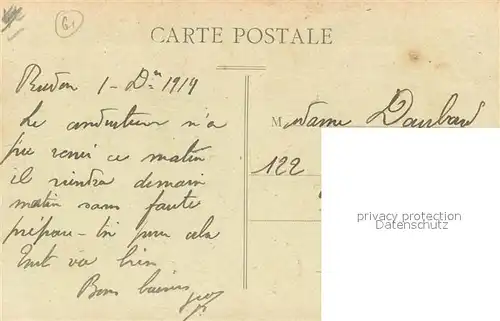 G1
CARTE POSTALE
Redon 1 - Dre 1919
Le conducteur n'a
pu venir ce matin
il viendra demain
matin sans faute
prépare-toi pour cela
Tout va bien
Bons baisers
Madame Daubard
122
privacy protection
Datenschutz